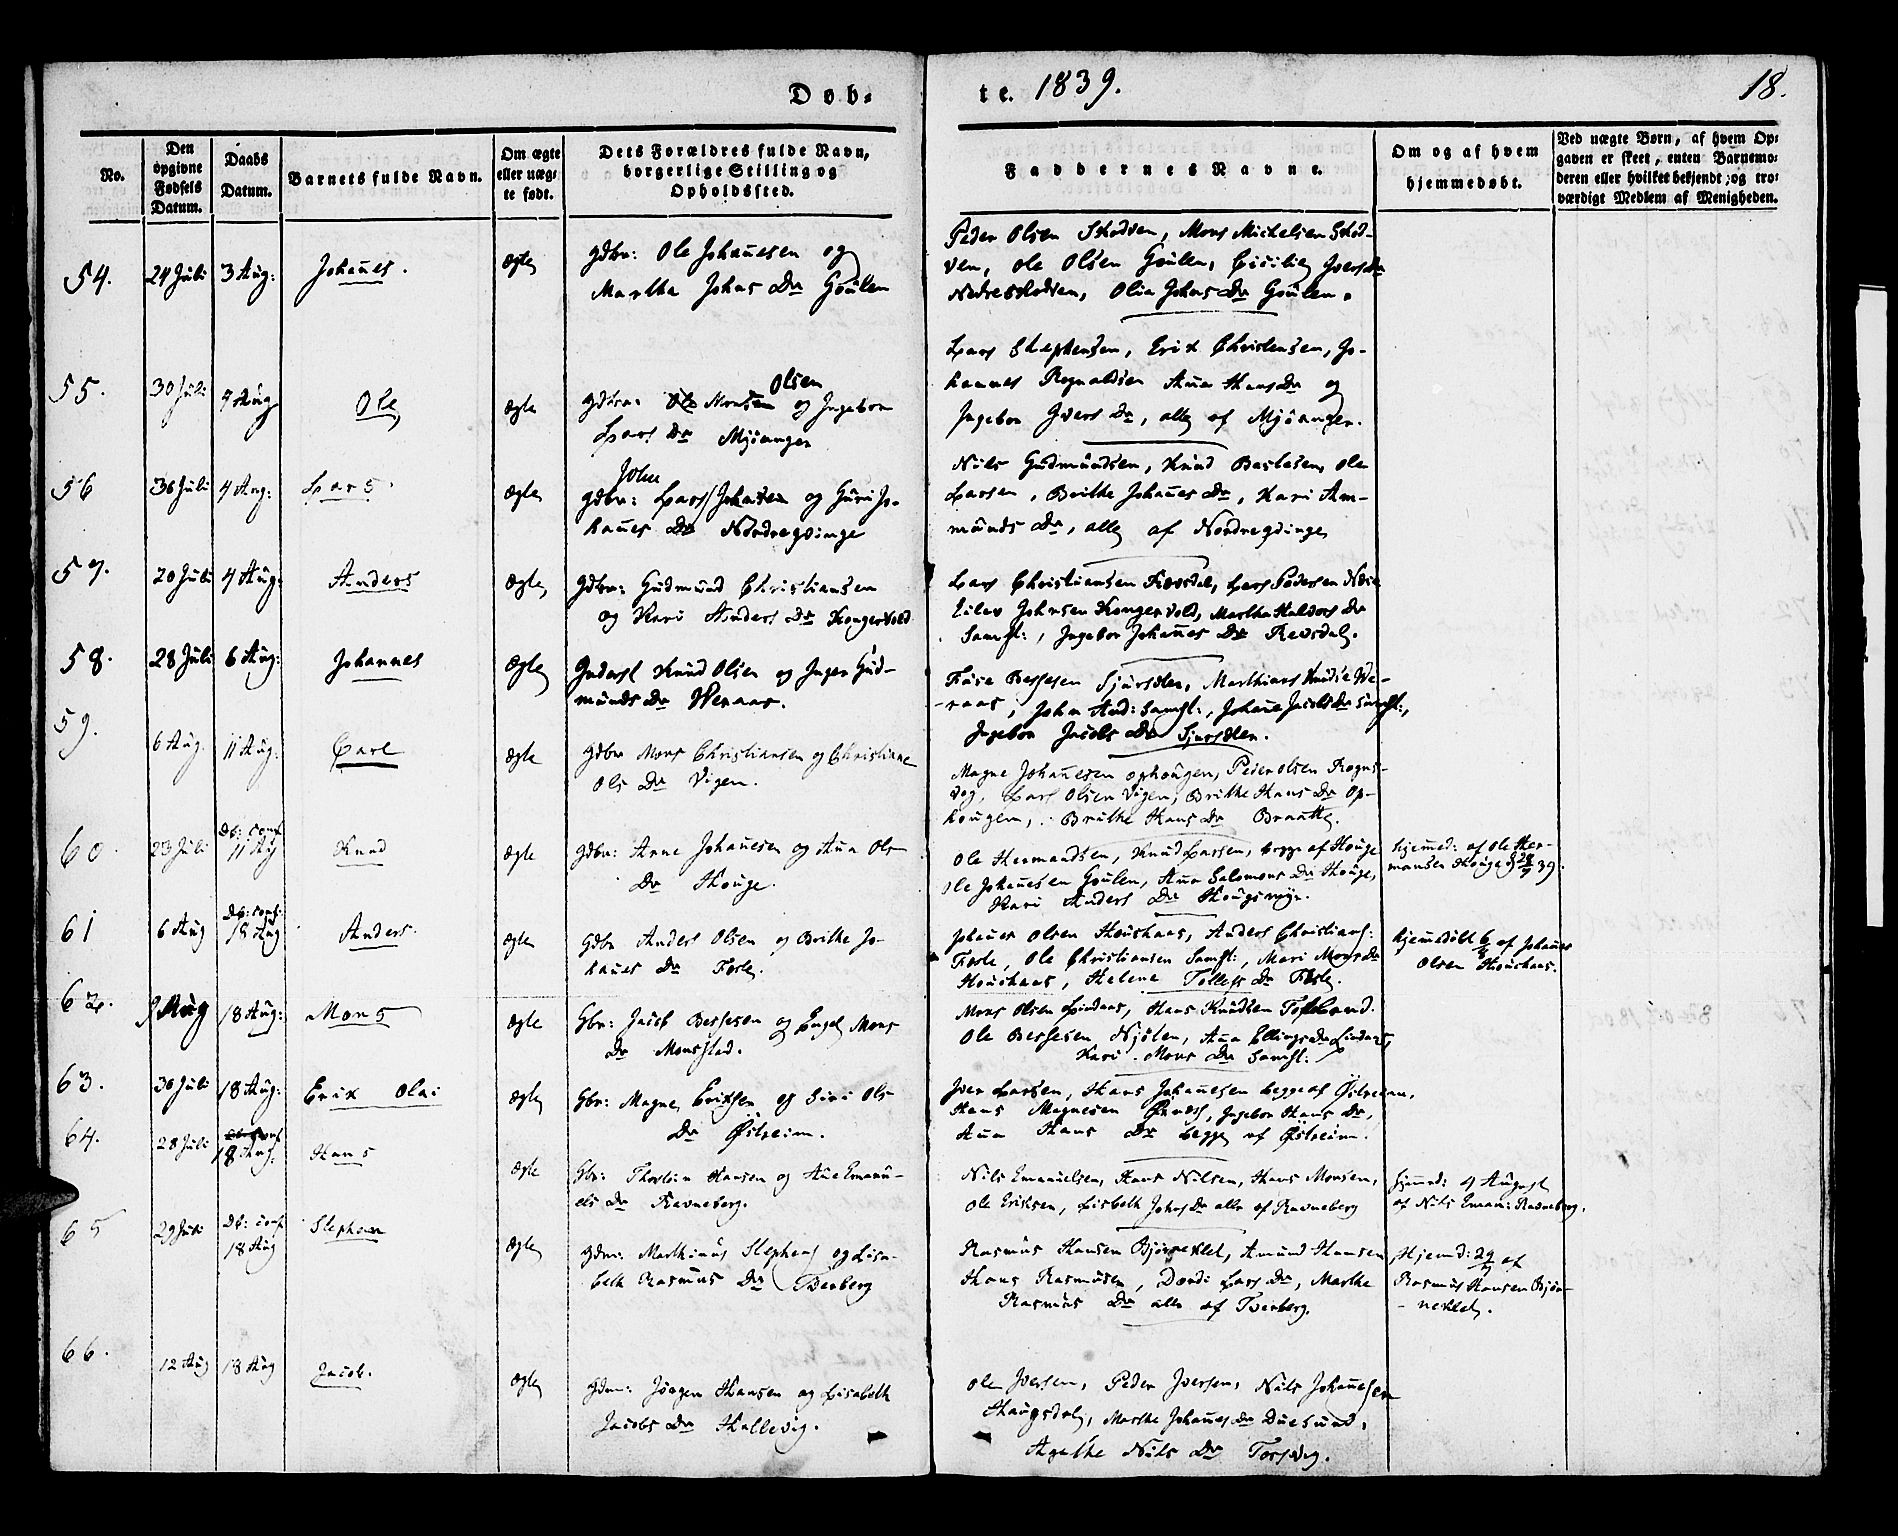 Døb-
te. 1839.
18.
No.
Den opgivne Fødsels Datum.
Daabs Datum.
Barnets fulde Navn.
Om ægte eller uægte født.
Dets Forældres fulde Navn, borgerlige Stilling og Opholdssted.
Faddernes Navne.
Om og af hvem hjemmedøbt.
Ved uægte Børn, af hvem Opgaven er skeet, enten Barnemoderen eller hvilket bekjendt; og troværdigt Medlem af Menigheden.
54. 24 Juli 3 Aug: Johañes. Ægte
Gdbr: Ole Johañesen og
Martha Johns Dr Goulen
Peder Olsen Skodven, Mons Michelsen Skod-
ven, Ole Olsen Goulen, Cicilie Ivers Dr
Nedreskodven, Olia Johns Dr Goulen.
55. 30 Juli 4 Aug Ole Ægte
Gdbr: Ole Monsen Olsen og Ingebor
Lars Dr Mjöanger
Lars Stephensen, Erik Christensen, Jo-
hannes Rognaldsen Aña Hans Dr og
Ingebor Ivers Dr, alle af Mjöanger.
56 30 Juli 4 Aug: Lars. Ægte
John
Gdbr: Lars Johnsen og Guri Jo-
hañes Dr Nordregvinge
Nils Gudmundsen, Knud Larsen, Ole
Larsen, Brithe Johañes Dr, Kari Am-
munds Dr, alle af Nordregvinge
57. 20 Juli 4 Aug: Anders Ægte
Gdbr: Gudmund Christiansen
og Kari Anders Dr Kongsvold
Lars Christiansen, Lars Pedersen
Johnsen Kongervold, Martha Haldors Dr
Samst:, Ingebor Johañes Dr Revsdal.
58. 28 Juli 6 Aug: Johannes Ægte
Knud Olsen og Inger Gud-
munds Dr Weraas.
Bessesen, Knudsen We-
raas, John And: Samst:, Johañe Jacobs Dr Samst:,
Ingebor Jacobs Dr
59. 6 Aug. 11 Aug: Carl Ægte
Gdbr Mons Christiansen og Christiane
Ols Dr Vigen.
Magne Johañesen Ophougen, Peder Olsen Rogns-
vog, Lars Olsen Vigen, Brithe Hans Dr Op-
hougen, Brithe Hans Dr Braatte.
60. 23 Juli Db: conf 11 Aug Knud Ægte
Gdbr: Arne Johañesen og Aña Ols
Dr Houge.
Ole Hermandsen, Knud Larsen, begge af Houge
Ole Johañesen Goulen, Aña Salomons Dr Houge,
Kari Anders Dr Hougsmyr.
Hjemed: af Ole Her-
mansen Houge d 28/7 39.
61 6 Aug Db: conf: 18 Aug Anders. Ægte
Gdbr Anders Olsen og Brithe Jo-
hañes Dr
Johañes Olsen, Anders Christians:
Ole Christiansen Samst:, Mari Mons Dr
Helene Tollefs Dr
Hjemedöbt 6/8 af Johañes
Olsen
62. 9 Aug 18 Aug: Mons Ægte
Gbr: Jacob Bessesen og Engel Mons
Dr Monsstad.
Mons Olsen Lindaas, Hans Knudsen
Ole Bessesen, Aña Ellings Dr Lindaas,
Kari Mons Dr Samst:
63. 30 Juli 18 Aug: Erik Olai Ægte
Gbr: Magne Eriksen og Siri Ols
Dr Östreim.
Iver Larsen, Hans Johañesen begge af Östreim.
Hans Magnesen, Ingebor Hans Dr,
Aña Hans Dr begge af Östreim.
64. 28 Juli Db: conf 18 Aug. Hans Ægte
Gbr: Thorstein Hansen og Añe Emanu-
els Dr Ravneberg.
Nils Emanuelsen, Hans Nilsen, Hans Monsen,
Ole Eriksen, Lisbeth Johns Dr alle af Ravneberg
Hjemed: 4 August
af Nils Eman: Ravneberg.
65 29 Juli Db: conf 18 Aug Stephen Ægte
Gdm: Mathinus Stephens og Lisa-
beth Rasmus Dr Tverberg
Rasmus Hansen, Amund Hansen
Hans Rasmusen, Dordi Lars Dr, Marthe
Rasmus Dr alle af Tverberg.
Hjemd: 29/7 af
Rasmus Hansen
66. 12 Aug 18 Aug Jacob. Ægte
Gdm: Jörgen Hansen og Lisabeth
Jacobs Dr Hallevig.
Ole Iversen, Peder Iversen, Nils Johañesen
Haugsdal, Marthe Johañes Dr Duesund,
Agathe Nils Dr